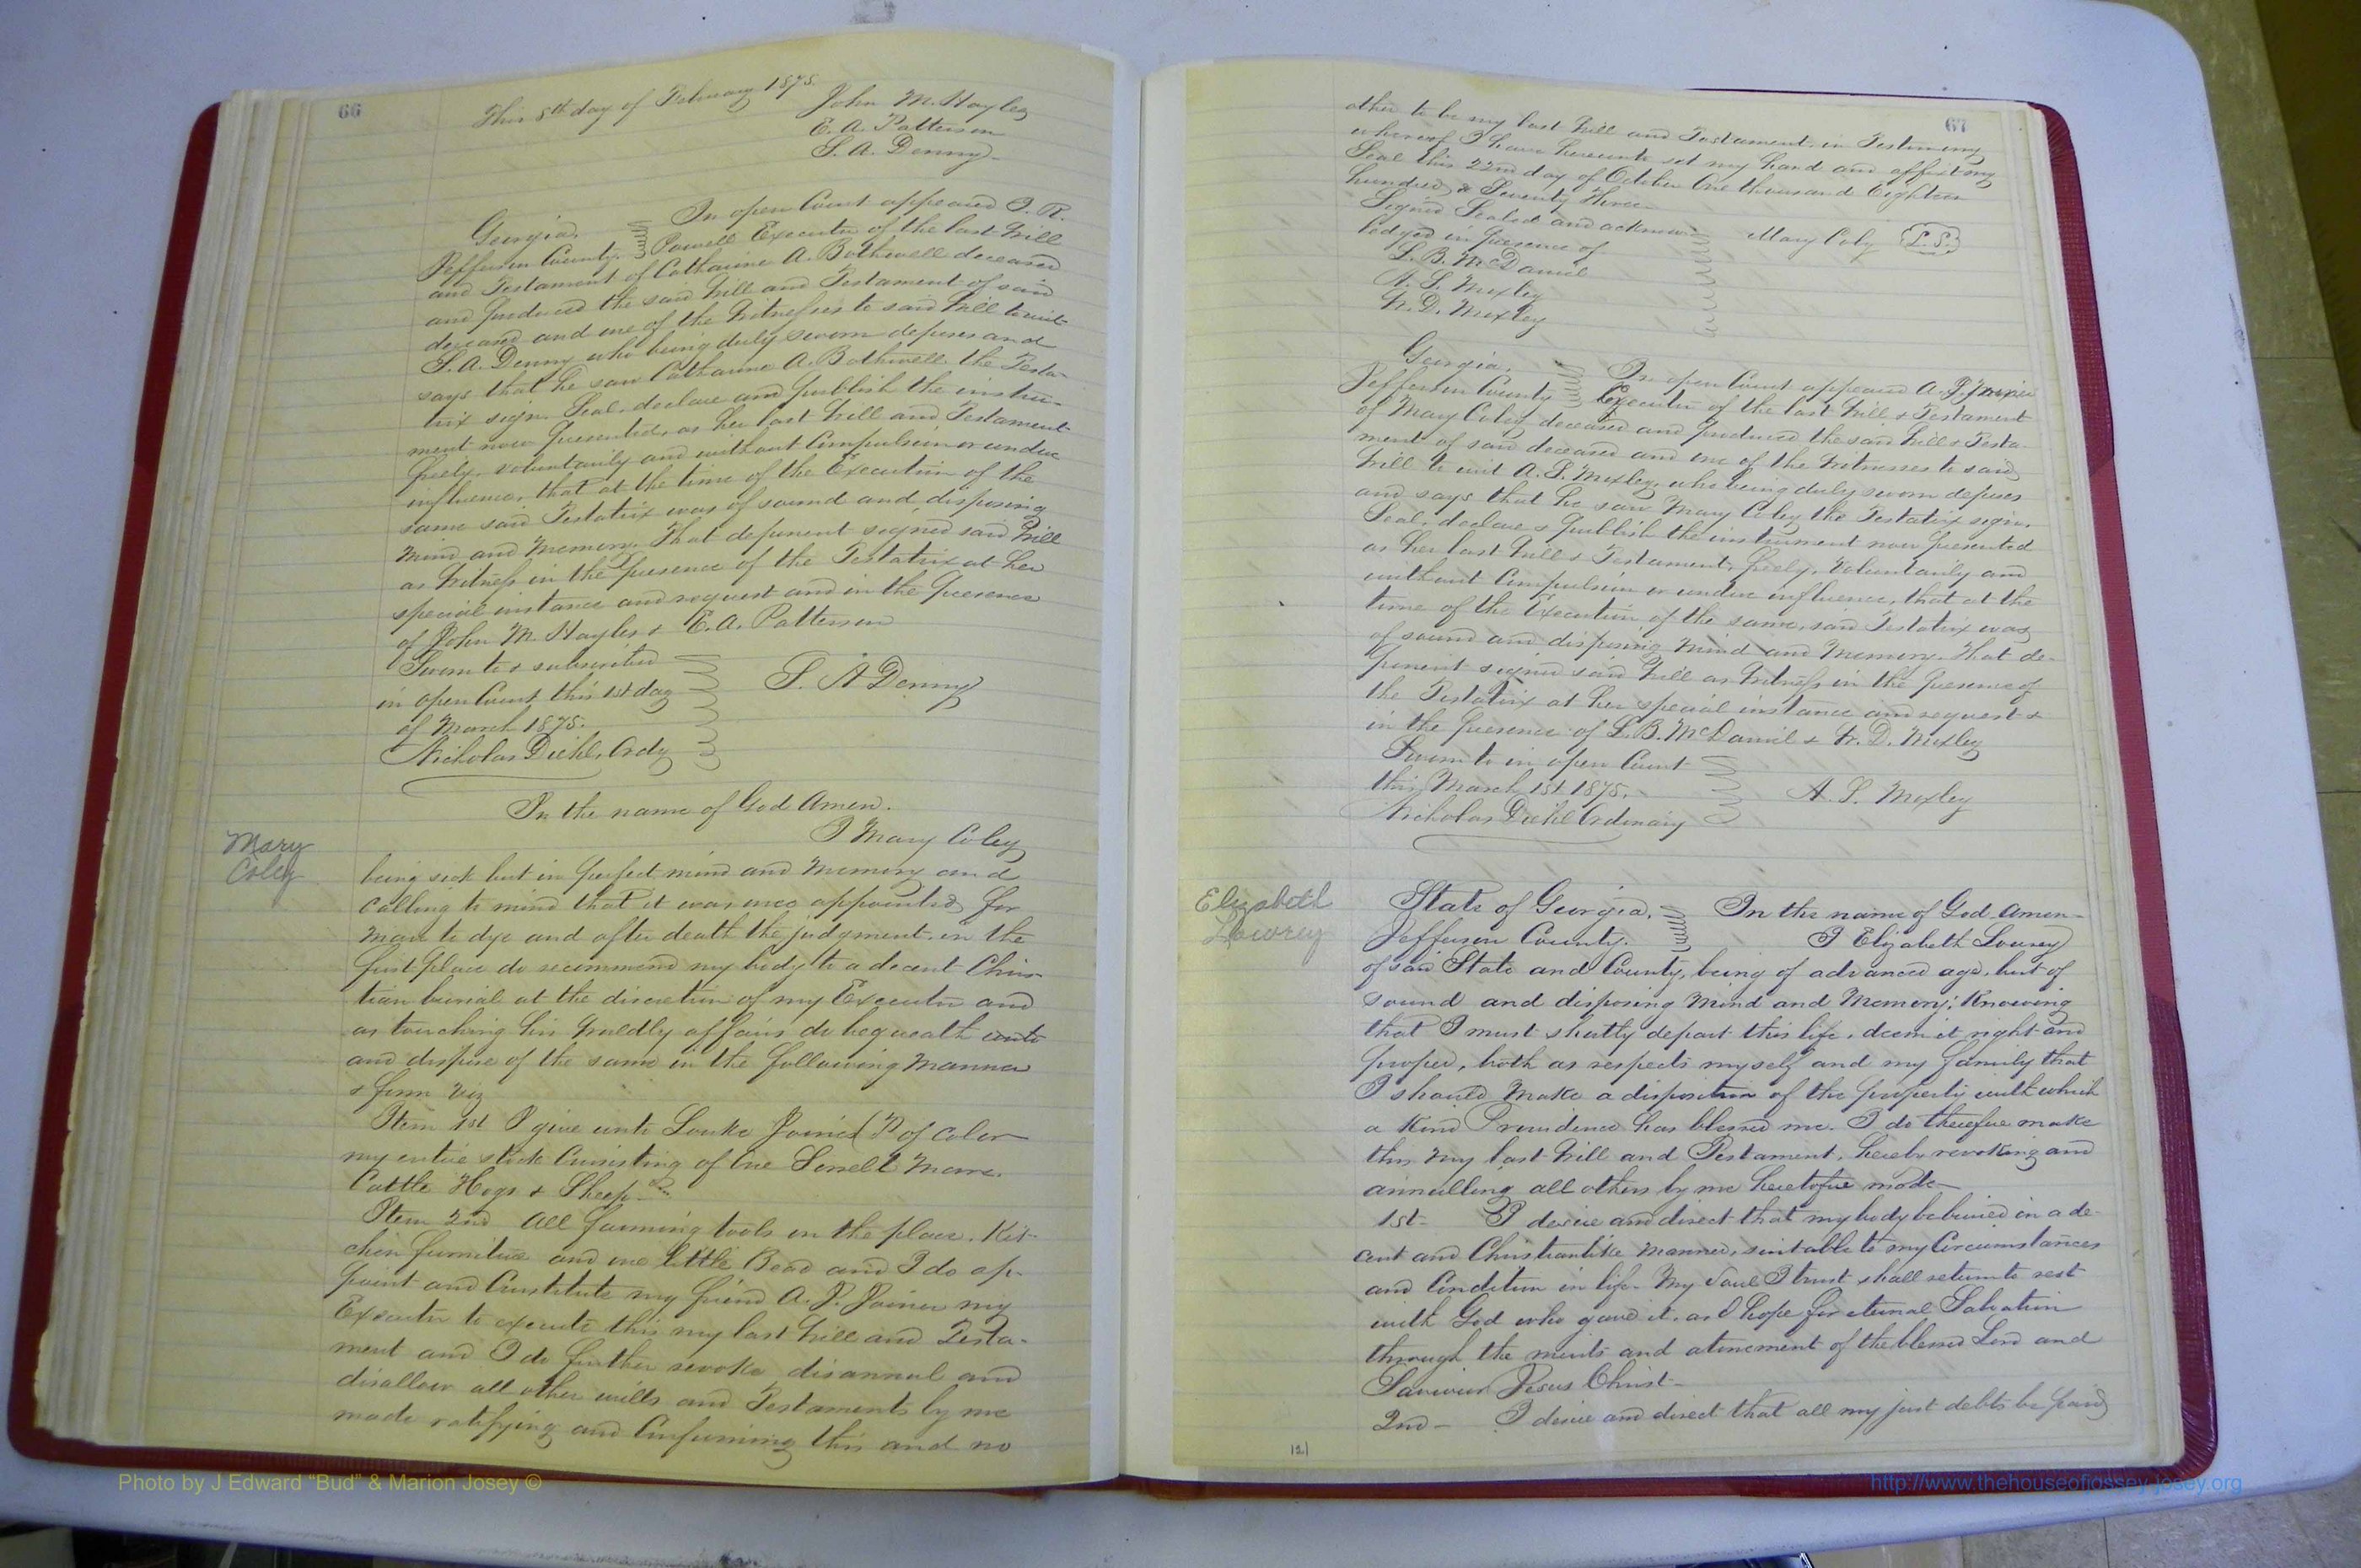 66
This 8th day of February 1875.
John M. Hayles
E. A. Patterson
S. A. Denny
Georgia,
Jefferson County
In open Court appeared J. R.
Powell Executor of the last Will
and Testament of Catharine A. Bothwell deceased
and produced the said Will and Testament of said
deceased and one of the Witnesses to said Will to wit
S. A. Denny who being duly sworn deposes and
says that he saw Catharine A. Bothwell the Testa-
trix sign, Seal, declare and publish the instru-
ment now presented, as her last Will and Testament
freely, voluntarily and without Compulsion or undue
influence, that at the time of the Execution of the
same said Testatrix was of sound and disposing
Mind and Memory. That deponent signed said Will
as Witness in the presence of the Testatrix at her
special instance and request and in the Presence
of John M. Hayles & E. A. Patterson
Sworn to & subscribed
in open Court this 1st day
of March 1875.
Nicholas Diehl, Ordy
S. A Denny
In the name of God Amen.
I Mary Coley
Mary
Coley
being sick but in perfect mind and Memory and
Calling to mind that it was once appointed for
Man to dye and after death the judgment, in the
first place do recommend my body to a decent Chris-
tian burial at the discretion of my Executor and
as touching his Worldly affairs do bequeath unto
and dispose of the same in the following Manner
& form viz
Item 1st I give unto Joiner P of Color
my entire stock Consisting of One Sorrell Mare,
Cattle Hogs & Sheep
Item 2nd All farming tools on the place, Kit-
chin furniture and one little Bead and I do ap-
point and Constitute my friend A. P. Joiner my
Executor to execute this my last Will and Testa-
ment and I do further revoke, disannul and
disallow all other wills and Testaments by me
made ratifying and Confirming this and no
67
other to be my last Will and Testament, in Testimony
whereof I have hereunto set my hand and affixt my
Seal this 22nd day of October One thousand Eighteen
hundred & Seventy Three
Signed Sealed and acknow-
ledged in presence of
Mary Coley L. S.
L. B. McDaniel
A. S. Moxley
W. D. Moxley
Georgia,
Jefferson County
In open Court appeared A. P. Joiner
Executor of the last Will & Testament
of Mary Coley deceased and produced the said Will & Testa-
ment of said deceased and one of the Witnesses to said
Will to wit A. S. Moxley, who being duly sworn deposes
and says that he saw Mary Coley the Testatrix sign,
Seal, declare & Publish the instrument now presented
as her last Will & Testament, freely, Voluntarily and
without Compulsion or undue influence, that at the
time of the Execution of the same, said Testatrix was
of sound and disposing Mind and Memory. That de-
ponent signed said Will as Witness in the Presence of
the Testatrix at her special instance and request &
in the Presence of L. B. McDaniel & W. D. Moxley
Sworn to in open Court
this March 1st 1875.
Nicholas Diehl Ordinary
A. S. Moxley
Elizabeth
Lowrey
State of Georgia,
Jefferson County.
In the name of God Amen-
I Elizabeth Lowrey
of said State and County, being of advanced age, but of
sound and disposing Mind and Memory; Knowing
that I must shortly depart this life, deem it right and
proper, both as respects myself and my family that
I should Make a disposition of the property with which
a Kind Providence has blessed me. I do therefore make
this My last Will and Testament, hereby revoking and
annulling all others by me heretofore made-
1st- I desire and direct that my body be buried in a de-
cent and Christianlike Manner, suitable to my Circumstances
and Condition in life- My Soul I trust shall return to rest
with God who gave it, as I hope for eternal Salvation
through the merits and atonement of the blessed Lord and
Saviour Jesus Christ-
2nd- I desire and direct that all my just debts be paid
121
Photo by J Edward “Bud” & Marion Josey ©
http://www.thehouseofjossey-josey.org